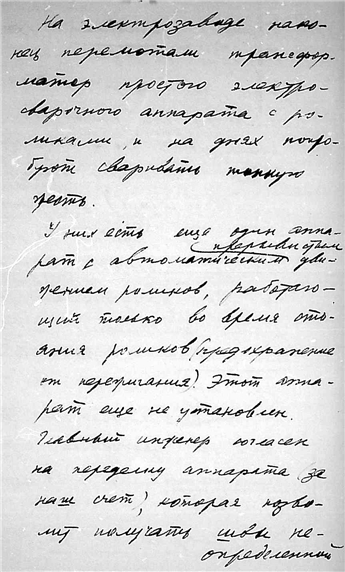 На электрозаводе нако-
нец перемотали трансфор-
матор простого электро-
сварочного аппарата с ро-
ликами, и на днях попро-
буют сваривать тонкую
жесть.
У них есть еще один аппа-
прерывистым
рат с автоматическим дви-
жением роликов, работаю-
щий только во время сто-
яния роликов (предохранение
от пережигания). Этот аппа-
рат еще не установлен.
Главный инженер согласен
на переделку аппарата (за
наш счет), которая позво-
лит получать швы не-
определенной